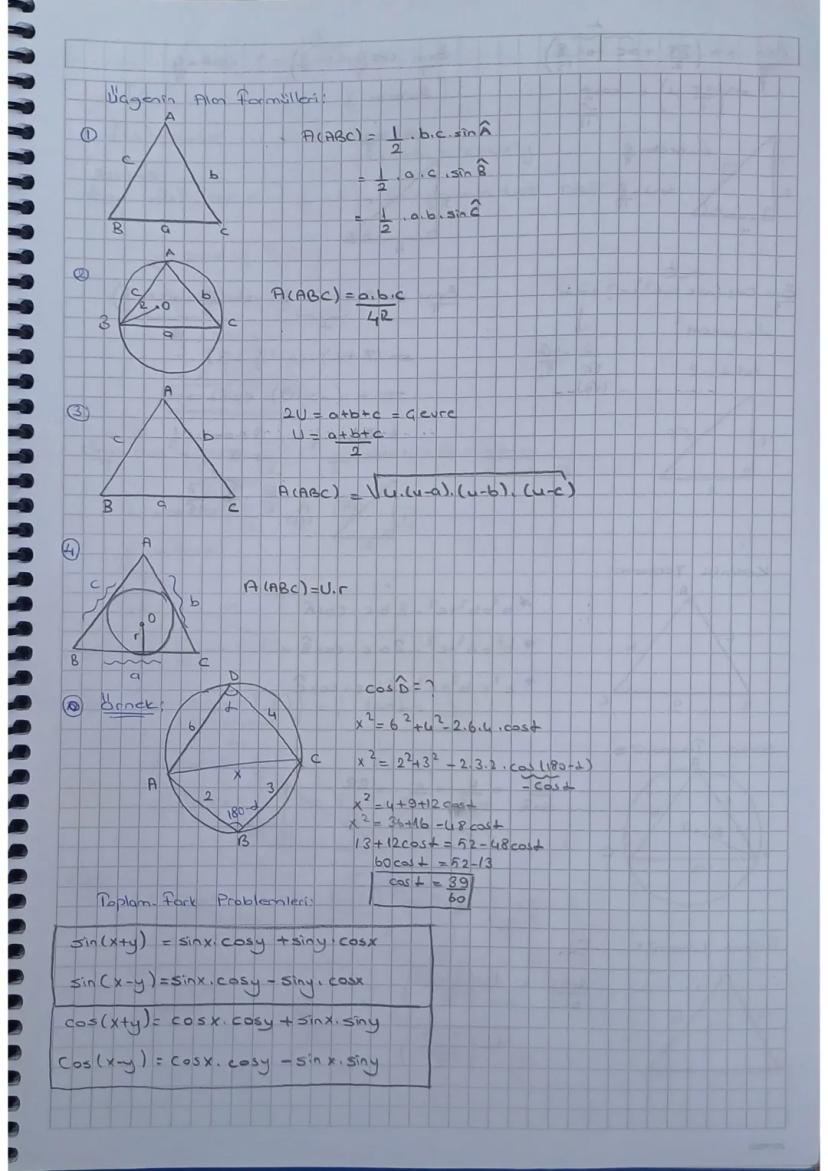 Üçgenin Alan Formülleri:
①
A
c
b
B
a
C
A(ABC) = 1/2 . b.c. sin Â
= 1/2 . a.c. sin B̂
= 1/2 . a.b. sin Ĉ
②
A
c
b
R
O
B
a
C
A(ABC) = a.b.c / 4R
③
A
c
b
B
a
C
2U = a+b+c = Çevre
U = a+b+c / 2
A(ABC) = √u.(u-a).(u-b).(u-c)
④
A
c
b
O
r
B
a
C
A(ABC) = U.r
Örnek:
D
α
6
4
A
x
C
2
3
180-α
B
cos D̂ = ?
x² = 6²+4²-2.6.4.cosα
x² = 2²+3² - 2.3.2.cos(180-α)
-cosα
x² = 4+9+12cosα
x² = 36+16-48cosα
13+12cosα = 52-48cosα
60cosα = 52-13
cosα = 39/60
Toplam-Fark Problemleri:
sin(x+y) = sinx.cosy + siny.cosx
sin(x-y) = sinx.cosy - siny.cosx
cos(x+y) = cosx.cosy + sinx.siny
Cos(x-y) = cosx.cosy - sinx.siny